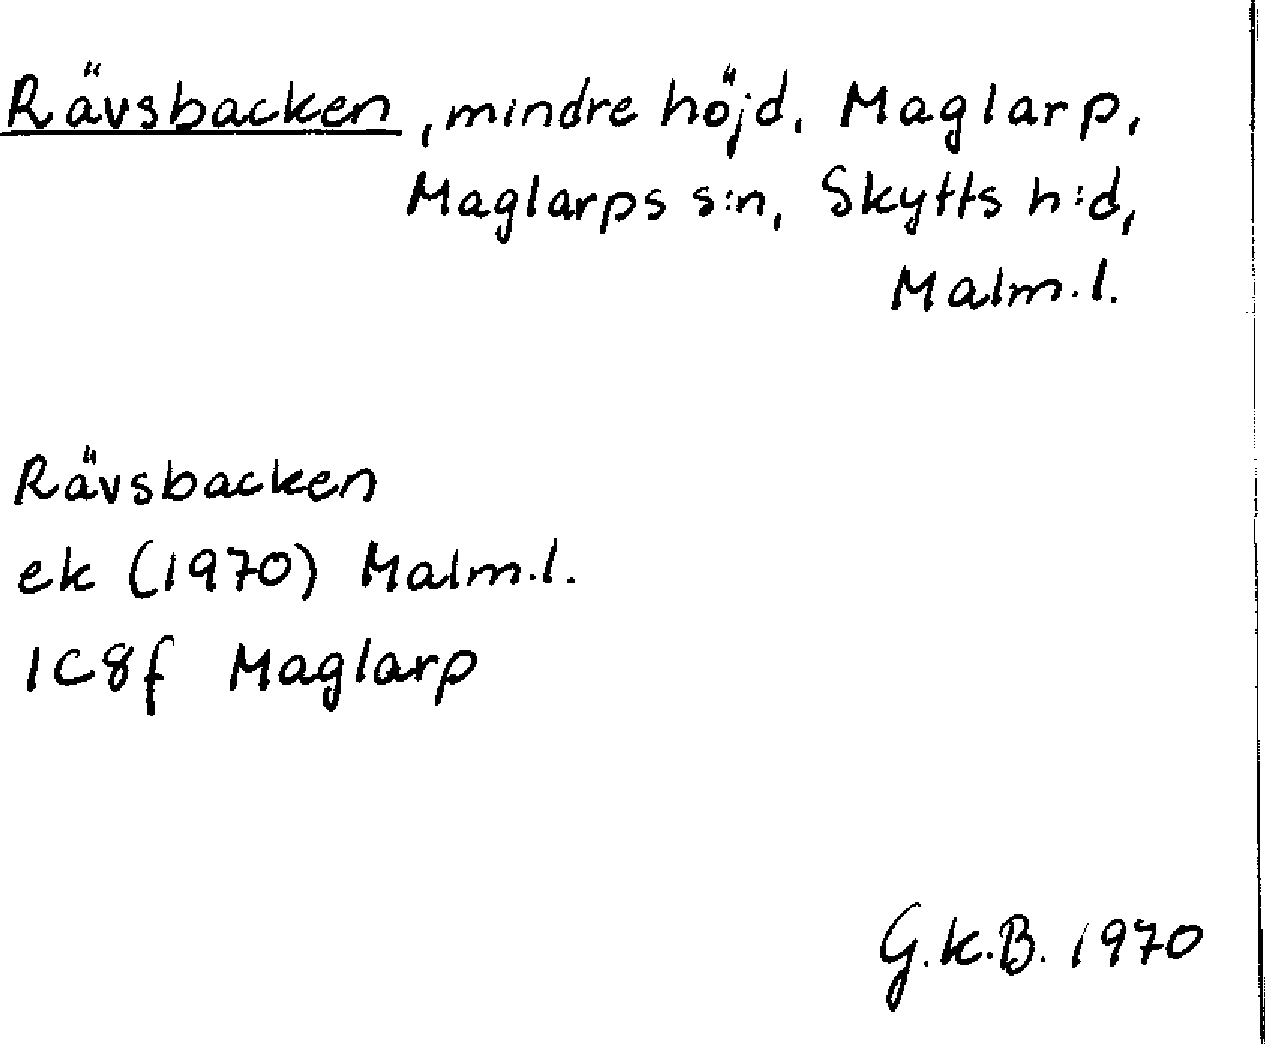 Rävsbacken, mindre höjd, Maglarp,
Maglarps s:n, Skytts h:d,
Malm.l.
Rävsbacken
ek (1970) Malm.l.
1C8f Maglarp
G.K.B. 1970